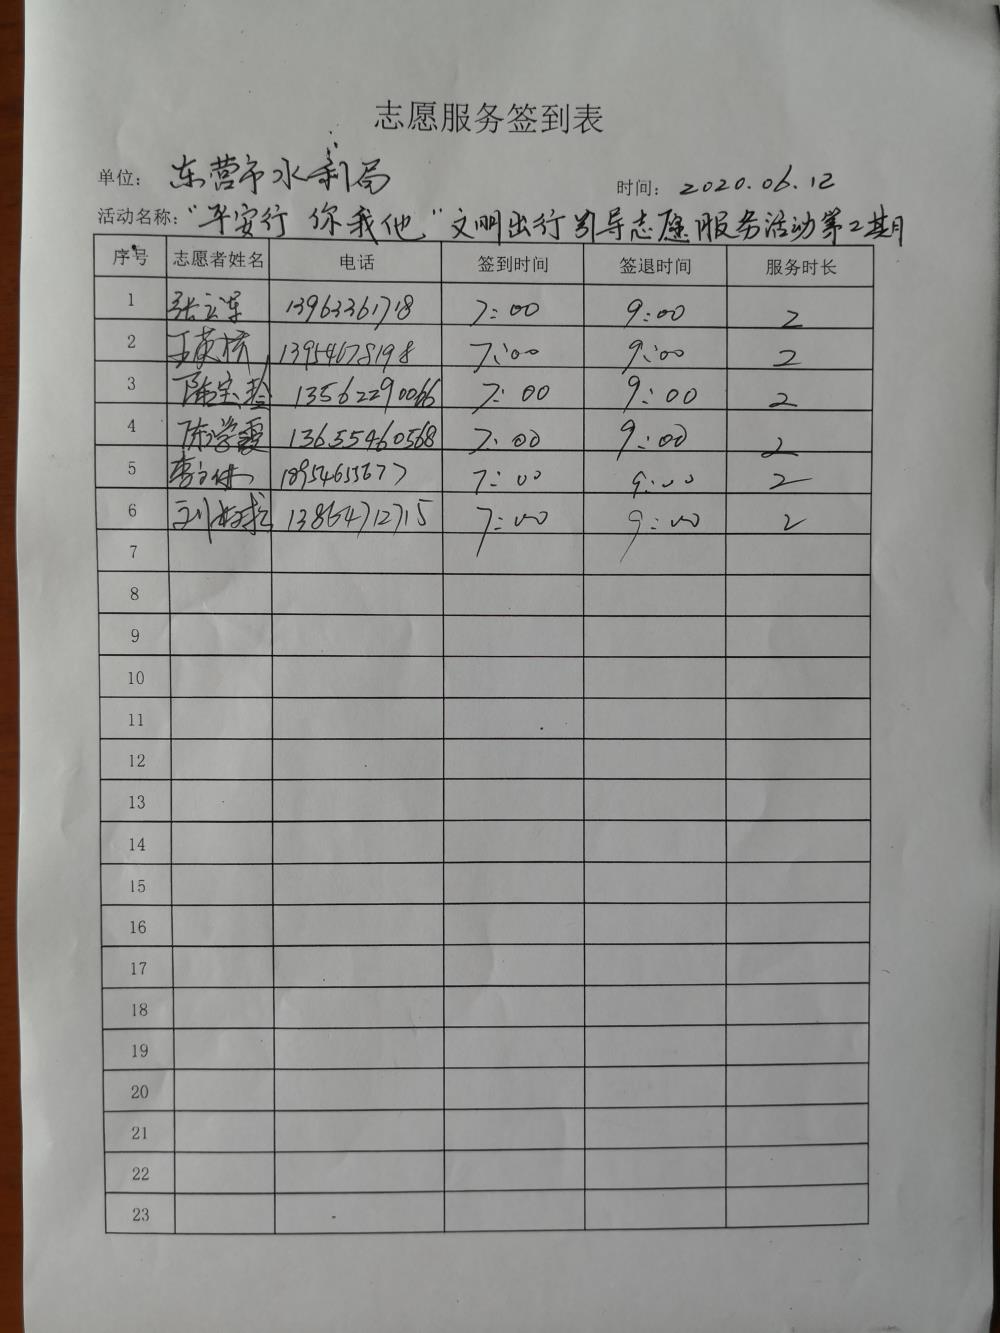 志愿服务签到表
单位: 东营市水利局 时间: 2020.06.12
活动名称: "平安行 你我他"文明出行引导志愿服务活动第二期
序号 志愿者姓名 电话 签到时间 签退时间 服务时长
1 张云军 13963361718 7:00 9:00 2
2 王英梅 13954678198 7:00 9:00 2
3 13562290066 7:00 9:00 2
4 陈学霞 13655460568 7:00 9:00 2
5 李立伟 7:00 9:00 2
6 13864712715 7:00 9:00 2
7
8
9
10
11
12
13
14
15
16
17
18
19
20
21
22
23